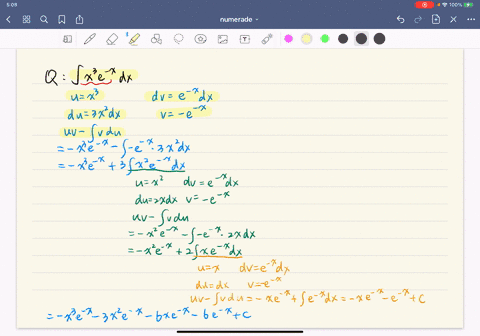 5:09
100%
numerade
Q: ∫x³e⁻ˣdx
u=x³ dv=e⁻ˣdx
du=3x²dx v=-e⁻ˣ
uv-∫vdu
=-x³e⁻ˣ-∫-e⁻ˣ·3x²dx
=-x³e⁻ˣ+3∫x²e⁻ˣdx
u=x² dv=e⁻ˣdx
du=2xdx v=-e⁻ˣ
uv-∫vdu
=-x²e⁻ˣ-∫-e⁻ˣ·2xdx
=-x²e⁻ˣ+2∫xe⁻ˣdx
u=x dv=e⁻ˣdx
du=dx v=-e⁻ˣ
uv-∫vdu=-xe⁻ˣ+∫e⁻ˣdx=-xe⁻ˣ-e⁻ˣ+C
=-x³e⁻ˣ-3x²e⁻ˣ-6xe⁻ˣ-6e⁻ˣ+C